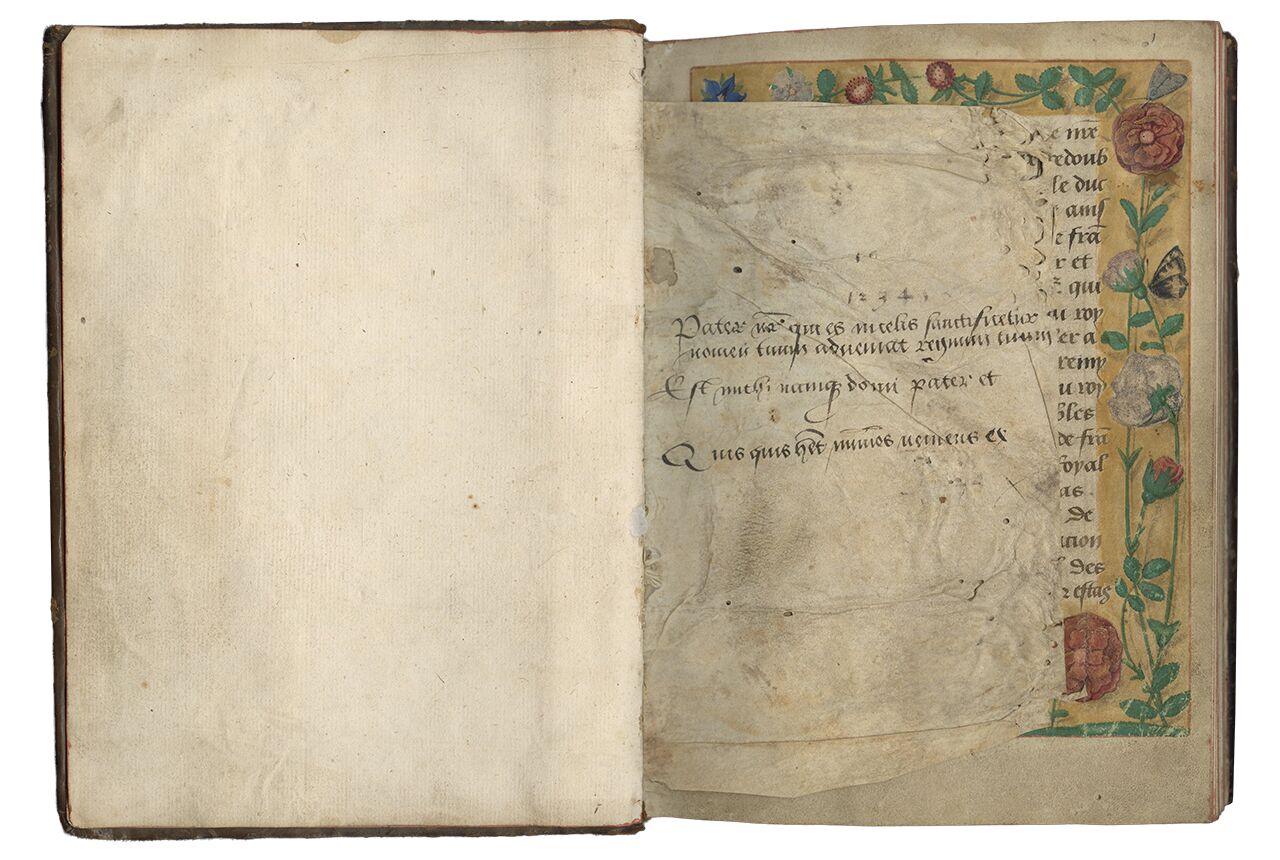 1 2 3 4
Pater nr̄ qui es in celis sanctificetur
nomen tuum adveniat regnum tuum
Est michi namq domi pater et
Quis quis h̄et nummos
e mē
redoub
le duc
ains
e frā
r et
qui
u roy
er a
remp
u roy
bles
de frā
royal
as
de
acion
des
r estas